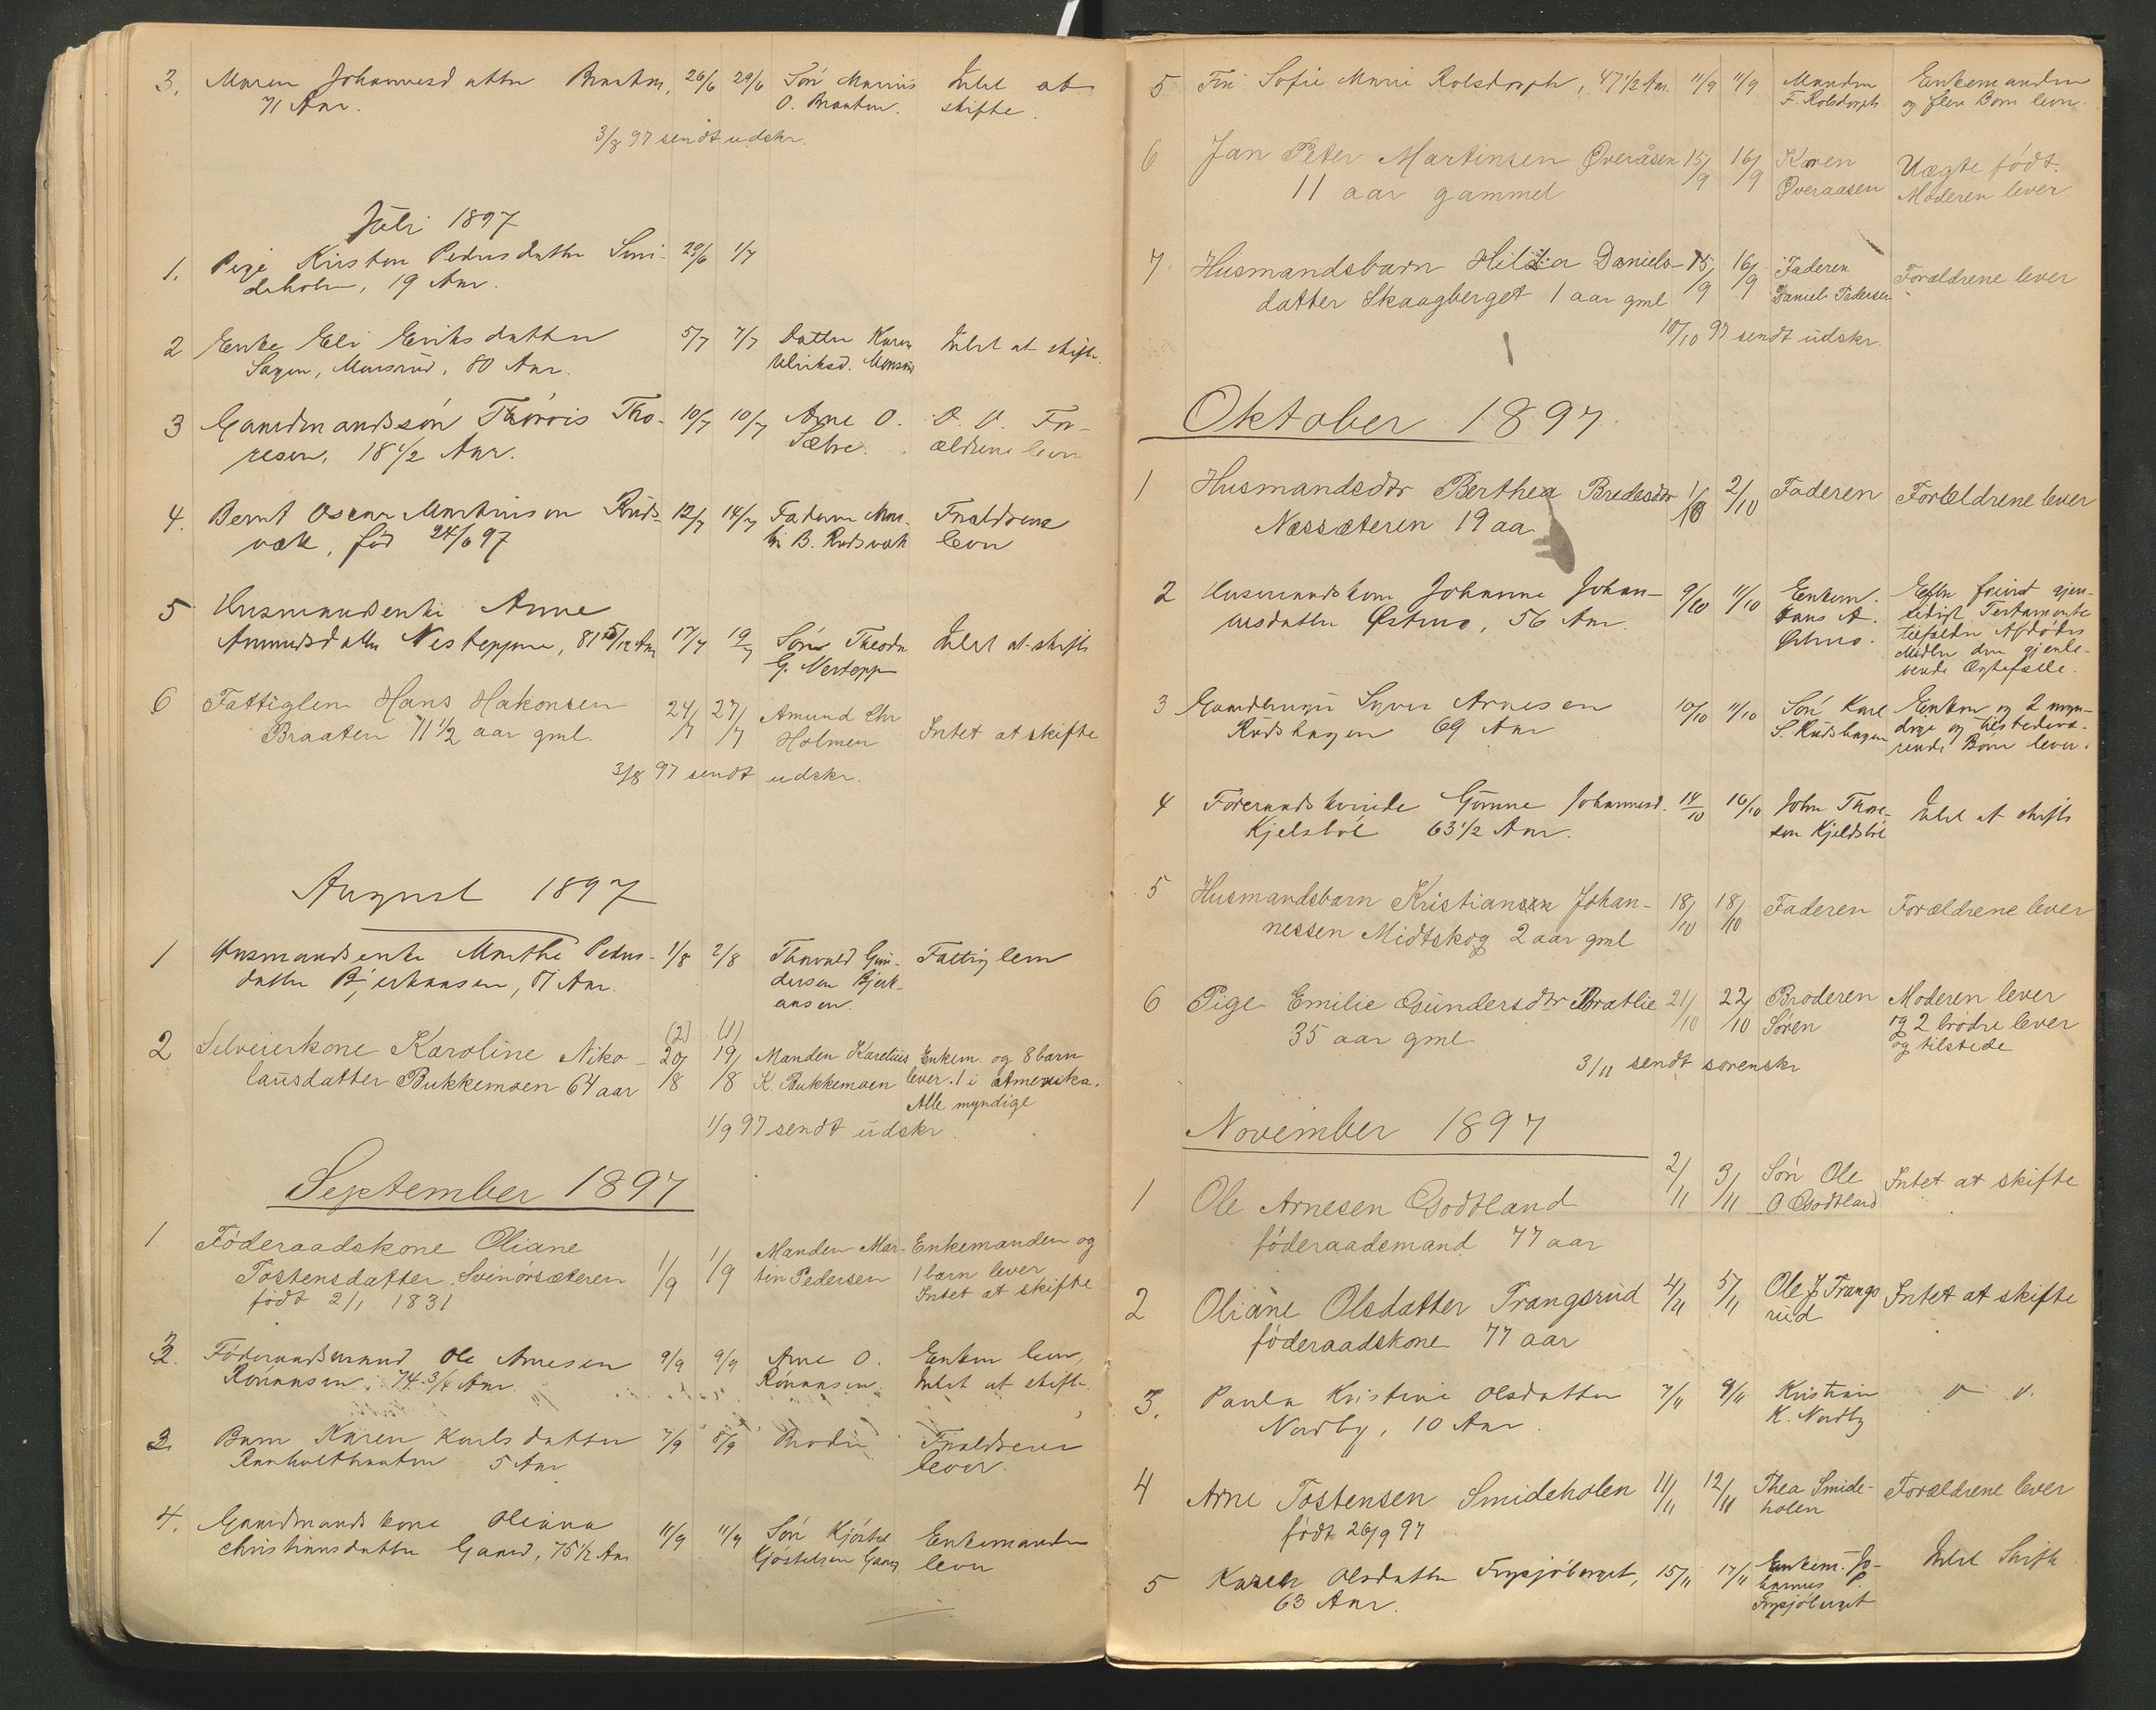 3. Maren Johannesdatter Braaten, 26/6 29/6 Søn Marius Intet at
71 Aar. O. Braaten. skifte.
3/8 97 sendt udskr.
Juli 1897
1. Pige Kirsten Pedersdatter Smi- 29/6 1/7
deholen, 19 Aar.
2 Enke Eli Eriksdatter 5/7 7/7 Datter Karen Intet at skifte.
Sagen, Monsrud, 80 Aar. Ulriksd. Monsrud
3 Gaardmandssøn Thorvis Tho- 10/7 10/7 Arne O. O. O. For-
resen, 18 1/2 Aar. Sæbre. ældrene lever
4. Bernt Oscar Martinsen Ruds- 12/7 14/7 Faderen Mar- Forældrene
væk, fød 24/6 97 tin B. Rudsvæk lever
5 Husmandsenke Anne
Amundsdatter Nesteppen, 81 5/12 Aar 17/7 19/7 Søn Theodor Intet at skifte
G. Nestepp
6 Fattiglem Hans Hakonsen 24/7 27/7 Amund Chr Intet at skifte
Braaten 71 1/2 aar gml. Holmen
3/8 97 sendt udskr.
August 1897
1 Husmandsenke Marthe Peders- 1/8 2/8 Thorvald Gun- Fattiglem
datter Bjerkaasen, 81 Aar. dersen Bjerk-
aasen.
(2) (1)
2 Selveierkone Karoline Niko- 20/8 19/8 Manden Karelius Enkem. og 8 barn
lausdatter Bukkemoen 64 aar K. Bukkemoen lever. 1 i Amerika.
Alle myndige
1/9 97 sendt udskr.
September 1897
1 Føderaadskone Oliane 1/9 1/9 Manden Mar- Enkemanden og
Tostensdatter Svinørsæteren tin Pedersen 1 barn lever
født 2/1 1831 Intet at skifte
2. Føderaadsmand Ole Arnesen 9/9 9/9 Arne O. Enken lever,
Rønaasen. 74 3/4 Aar. Rønaasen Intet at skifte.
3. Barn Karen Karlsdatter 7/9 8/9 Forældrene
5 Aar lever.
4. Gaardmandskone Oliana 11/9 11/9 Søn Kjøstel Enkemanden
Christiansdatter Gaard, 75 1/2 Aar Kjøstelsen Gaard lever
5 Fru Sofie Marie Rolsdorph, 47 1/2 Aar. 11/9 11/9 Manden Enkemanden
F. Rolsdorph og flere Børn lever.
6 Jan Peter Martinsen Øveråsen 15/9 16/9 Karen Uægte født.
11 aar gammel Øveraasen Moderen lever.
7 Husmandsbarn Hilda Daniels- 15/9 16/9 Faderen Forældrene lever
datter Skaagberget 1 aar gml Daniel Pedersen
10/10 97 sendt udskr.
Oktober 1897
1 Husmandsdtr Berthea Bredesdtr 1/10 2/10 Faderen Forældrene lever
Næssæteren 19 aa
2 Husmandskone Johanne Johan- 9/10 11/10 Enkem. Efter gjen-
nesdatter Østmo, 56 Aar. Hans A. sidigt Testamente
Østmo. tilfalder Afdødes
Midler den gjenle-
vende Ægtefælle.
3 Gaardbruger Syver Arnesen 10/10 11/10 Søn Karl Enken og 2 myn-
Rudshagen 69 Aar S. Rudshagen dige og tilstedevæ-
rende Børn lever.
4 Føderaadskvinde Gunne Johannesd. 14/10 16/10 John Thore- Intet at skifte
Kjelsbøl 63 1/2 Aar. sen Kjeldsbøl
5 Husmandsbarn Kristian Johan- 18/10 18/10 Faderen Forældrene lever
nessen Midtskog 2 aar gml
6 Pige Emilie Gundersdtr Bratlie 21/10 22/10 Broderen Moderen lever
35 aar gml Søren og 2 brødre lever
og tilstede
3/11 sendt sorenskr
November 1897
1 Ole Arnesen Godtland 2/11 3/11 Søn Ole Intet at skifte
føderaadsmand 77 aar O Godtland
2 Oliane Olsdatter Trangsrud 4/11 5/11 Ole J Trangs Intet at skifte
føderaadskone 77 aar rud
3. Paula Kristine Olsdatter 7/11 9/11 Kristian
Nordby, 10 Aar. K. Nordby
4 Arne Tostensen Smideholen 11/11 12/11 Thea Smide- Forældrene lever
født 26/9 97 holen
5 Karen Olsdatter Frysjøberget, 15/11 17/11 Enkem. Jo- Intet Skifte
63 Aar. hannes P.
Frysjøberget